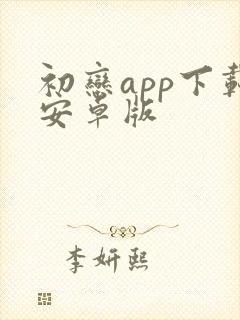 初戀app下載
安卓版
李妍熙